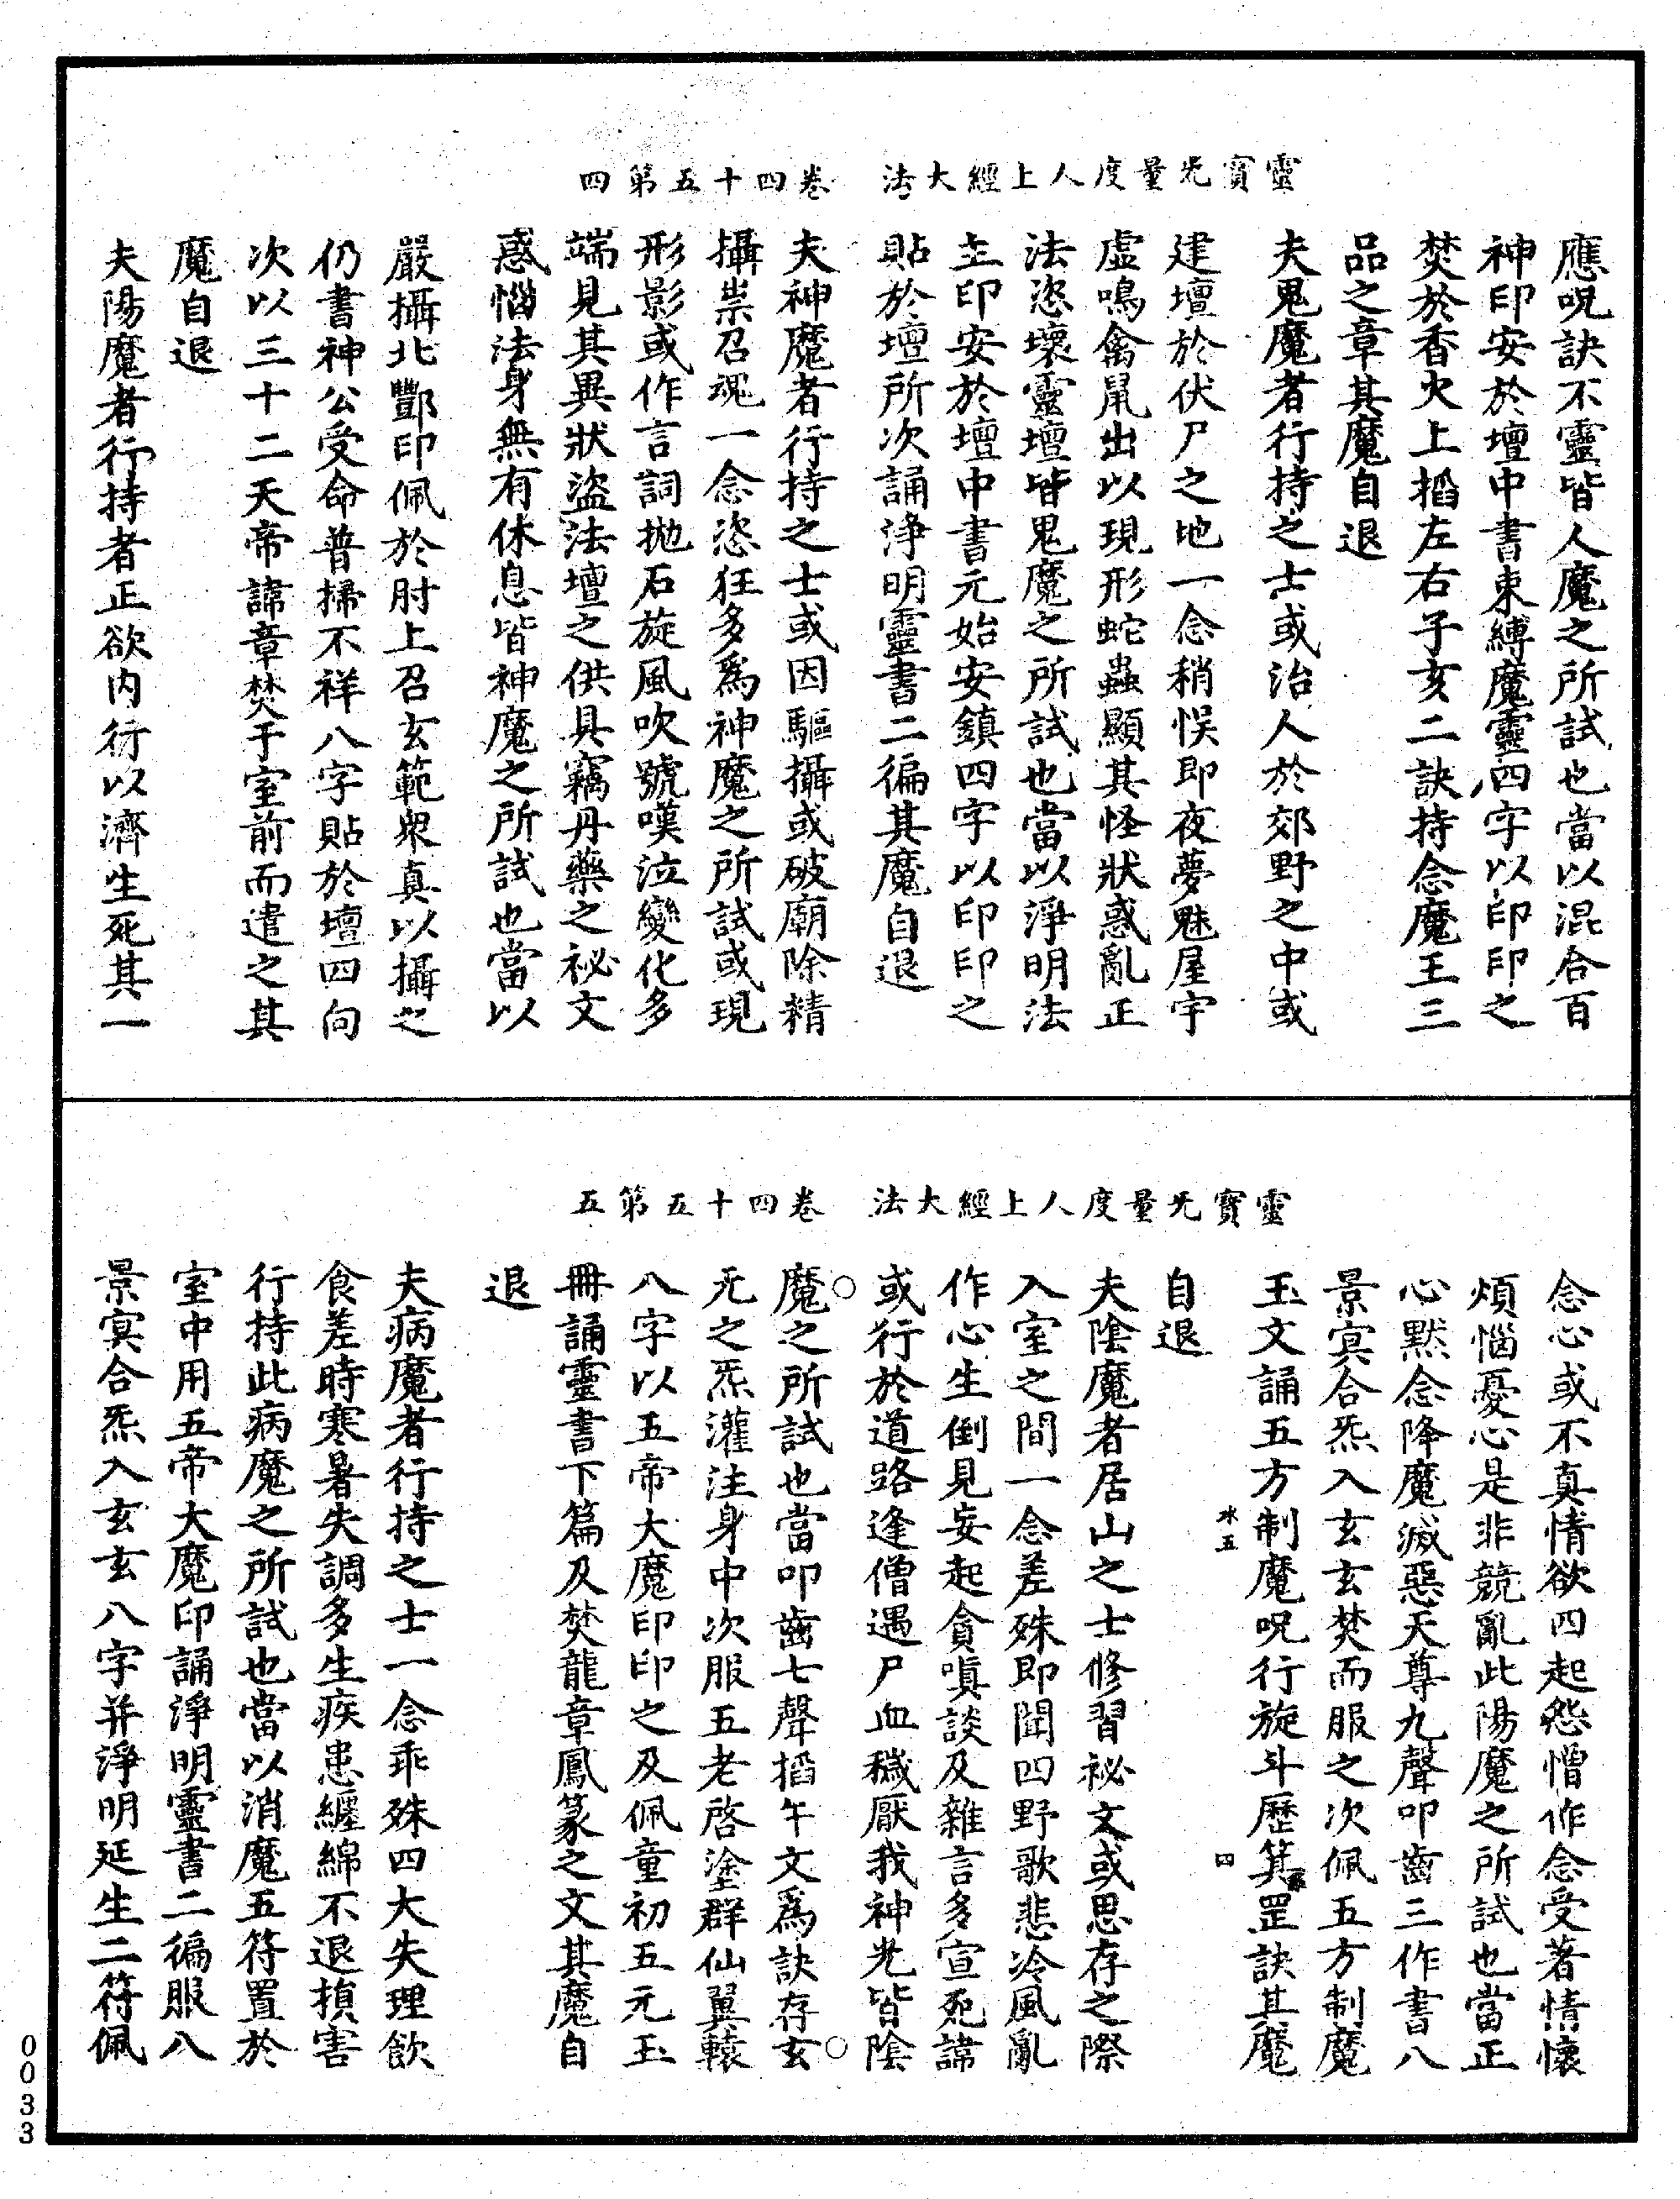 靈寶无量度人上經大法　卷四十五第四
應呪訣不靈皆人魔之所試也當以混合百
神印安於壇中書束縛魔靈四字以印印之
焚於香火上搯左右子亥二訣持念魔王三
品之章其魔自退
夫鬼魔者行持之士或治人於郊野之中或
建壇於伏尸之地一念稍悮即夜夢魅屋宇
虛鳴禽鼠出以現形蛇蟲顯其怪狀惑亂正
法恣壞靈壇皆鬼魔之所試也當以淨明法
主印安於壇中書元始安鎮四字以印印之
貼於壇所次誦淨明靈書二徧其魔自退
夫神魔者行持之士或因驅攝或破廟除精
攝祟召魂一念恣狂多爲神魔之所試或現
形影或作言詞拋石旋風吹號嘆泣變化多
端見其異狀盜法壇之供具竊丹藥之祕文
惑惱法身無有休息皆神魔之所試也當以
嚴攝北酆印佩於肘上召玄範衆真以攝之
仍書神公受命普掃不祥八字貼於壇四向
次以三十二天帝諱章焚于室前而遣之其
魔自退
夫陽魔者行持者正欲內行以濟生死其一
靈寶无量度人上經大法　卷四十五第五
念心或不真情欲四起怨憎作念受著情懷
煩惱憂心是非競亂此陽魔之所試也當正
心默念降魔滅惡天尊九聲叩齒三作書八
景冥合炁入玄玄焚而服之次佩五方制魔
玉文誦五方制魔呪行旋斗歷箕罡訣其魔
水五　四
自退
夫陰魔者居山之士修習祕文或思存之際
入室之間一念差殊即聞四野歌悲冷風亂
作心生倒見妄起貪嗔談及雜言多宣死諱
或行於道路逢僧遇尸血穢厭我神光皆陰
魔之所試也當叩齒七聲搯午文爲訣存玄
元之炁灌注身中次服五老啓塗群仙翼轅
八字以五帝大魔印印之及佩童初五元玉
冊誦靈書下篇及焚龍章鳳篆之文其魔自
退
夫病魔者行持之士一念乖殊四大失理飲
食差時寒暑失調多生疾患纏綿不退損害
行持此病魔之所試也當以消魔五符置於
室中用五帝大魔印誦淨明靈書二徧服八
景冥合炁入玄玄八字并淨明延生二符佩
0033